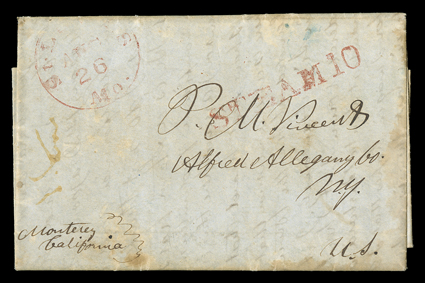 26
Mo.
STEAM 10
P. M. Vincent
Alfred Allegany Co.
N.Y.
U.S.
Monterey
California